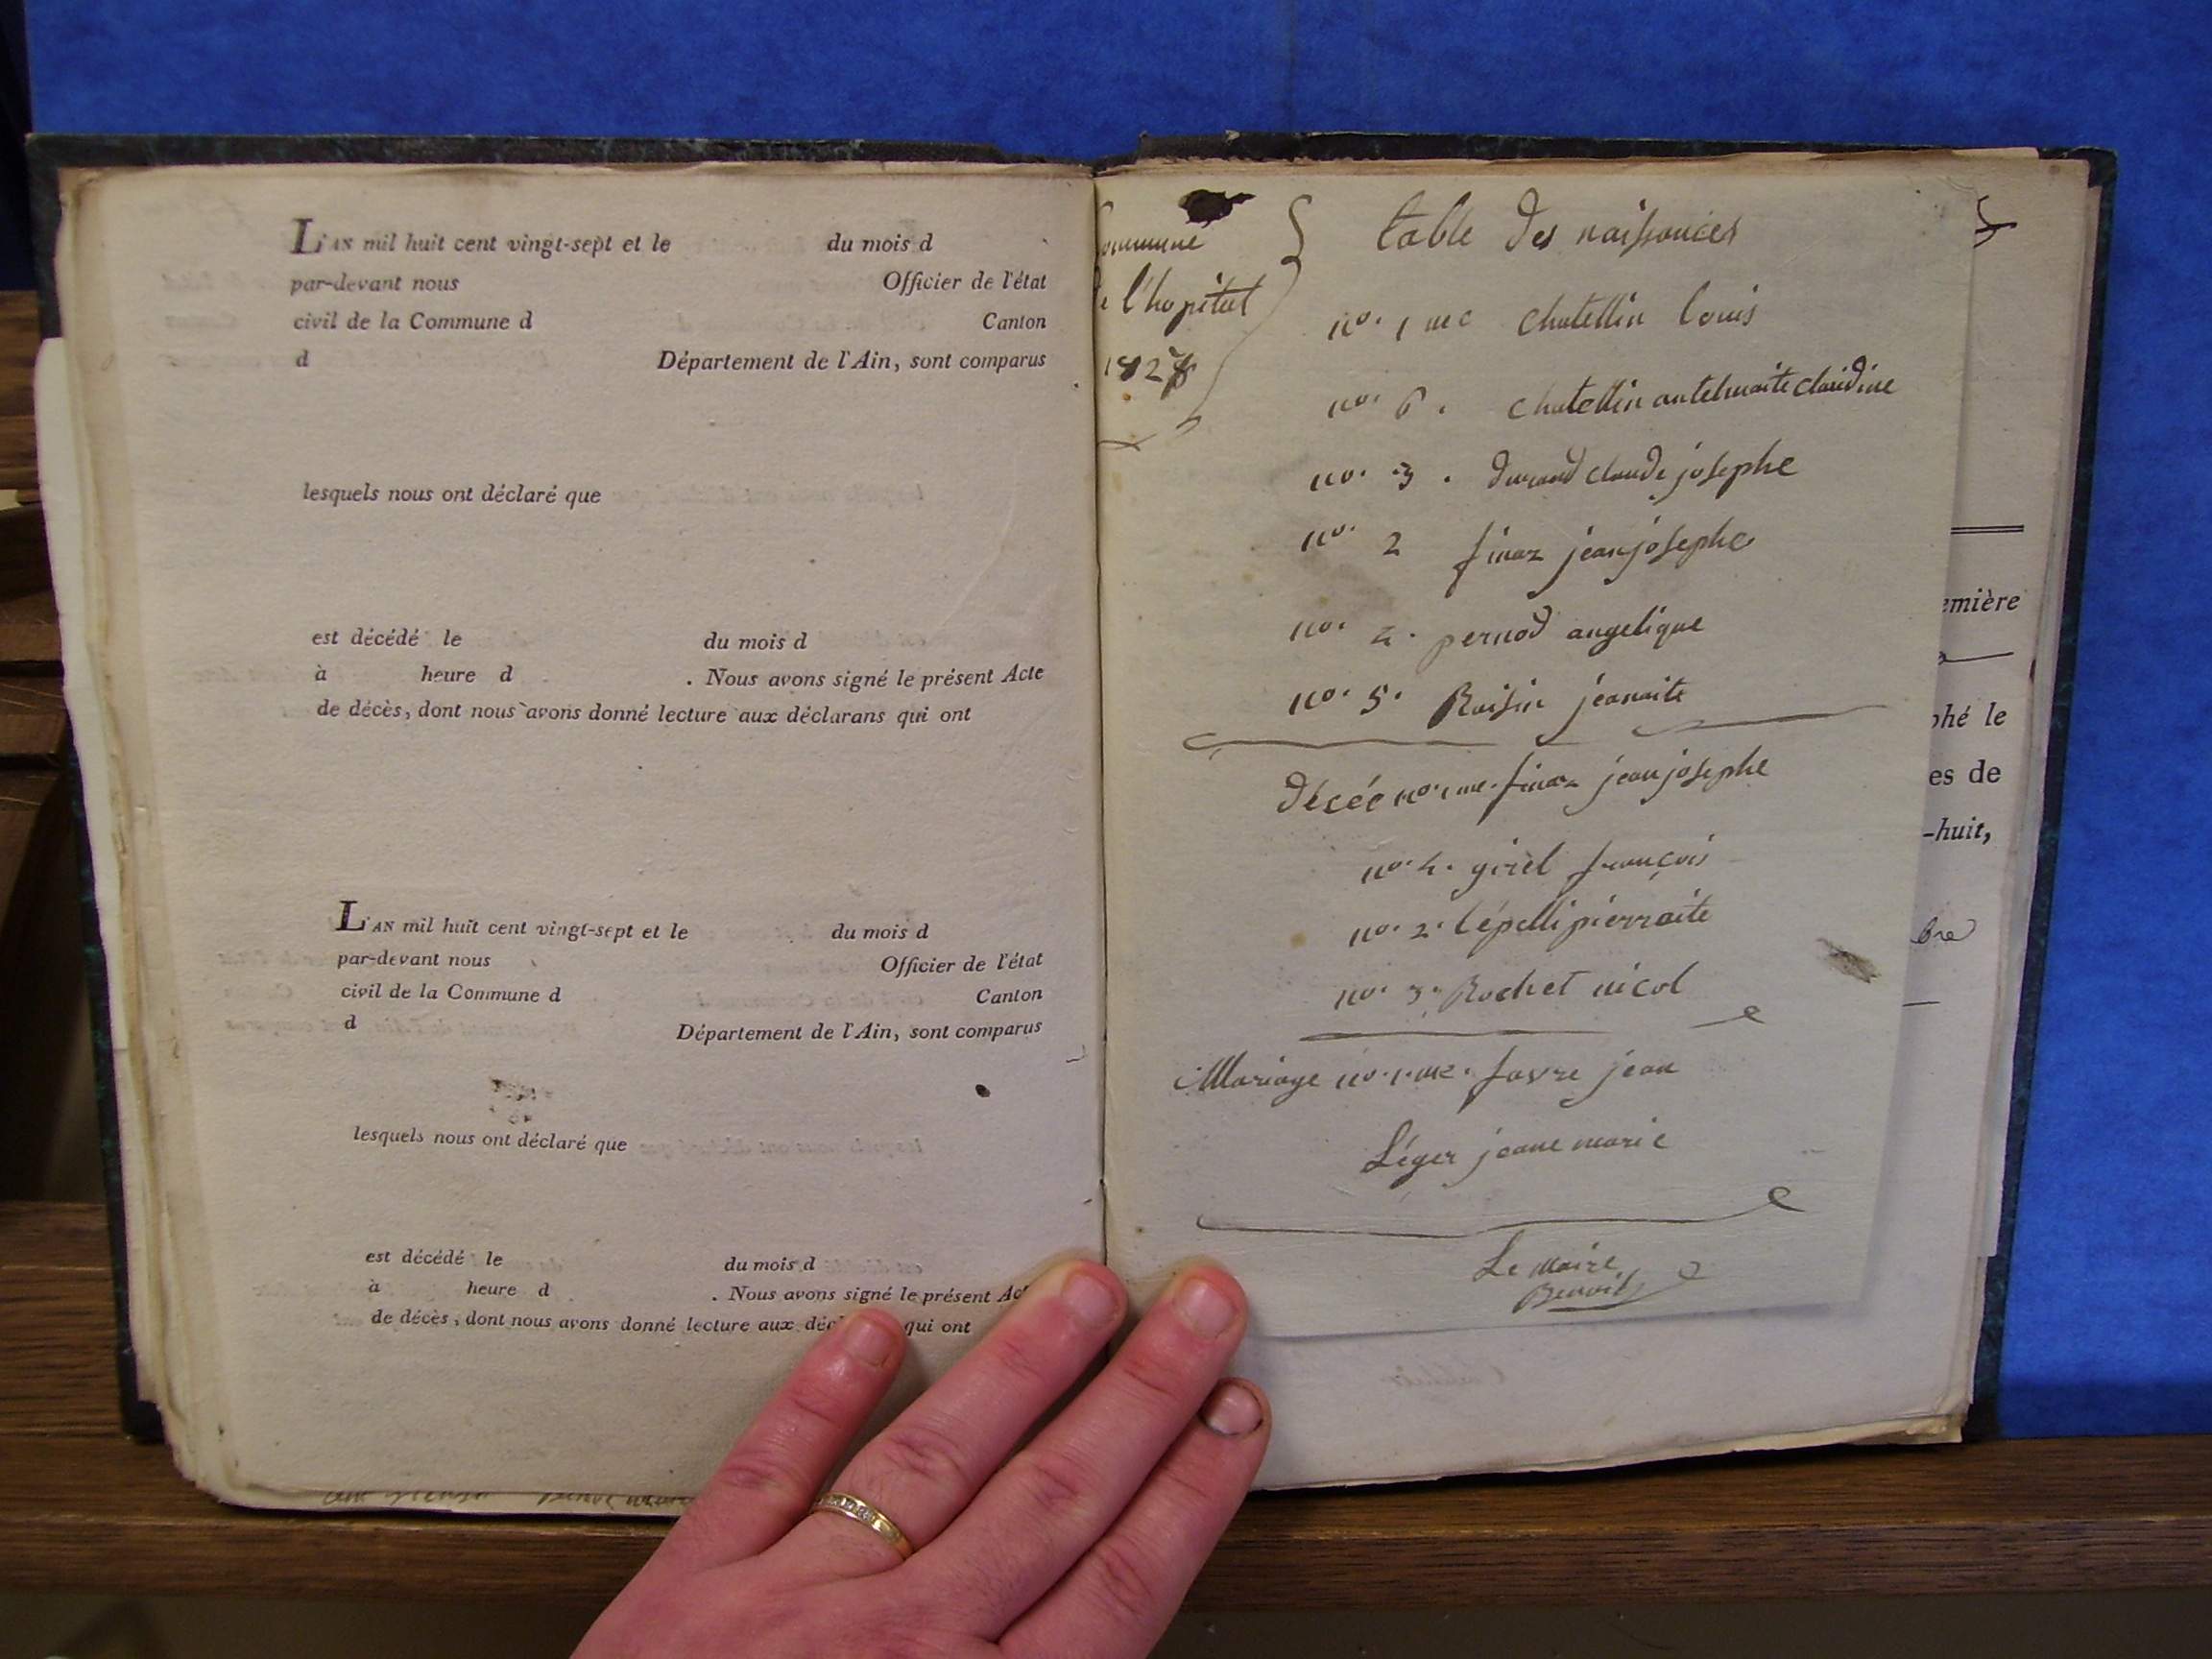 L'AN mil huit cent vingt-sept et le du mois d
par-devant nous Officier de l'état
civil de la Commune d Canton
d Département de l'Ain, sont comparus
lesquels nous ont déclaré que
est décédé le du mois d
à heure d . Nous avons signé le présent Acte
de décès, dont nous avons donné lecture aux déclarans qui ont
L'AN mil huit cent vingt-sept et le du mois d
par-devant nous Officier de l'état
civil de la Commune d Canton
d Département de l'Ain, sont comparus
lesquels nous ont déclaré que
est décédé le du mois d
à heure d . Nous avons signé le présent Act
de décès, dont nous avons donné lecture aux déc qui ont
ommune
l'hopital
table des naissances
no. 1 me chatellin louis
no. 6. chatellin antelmaite claudine
no. 3. durand claude josephe
no. 2 finaz jean josephe
no. 4. pernod angelique
no. 5. Raisin jeanaite
décée no. 1 me. finaz jean josephe
no. 4. girel françois
no. 2. lépelli pierraite
no. 3. Rochet nicol
Mariage no. 1. me. favre jean
Léger jeane marie
Le Maire
Benoit
emière
phé le
es de
-huit,
bre